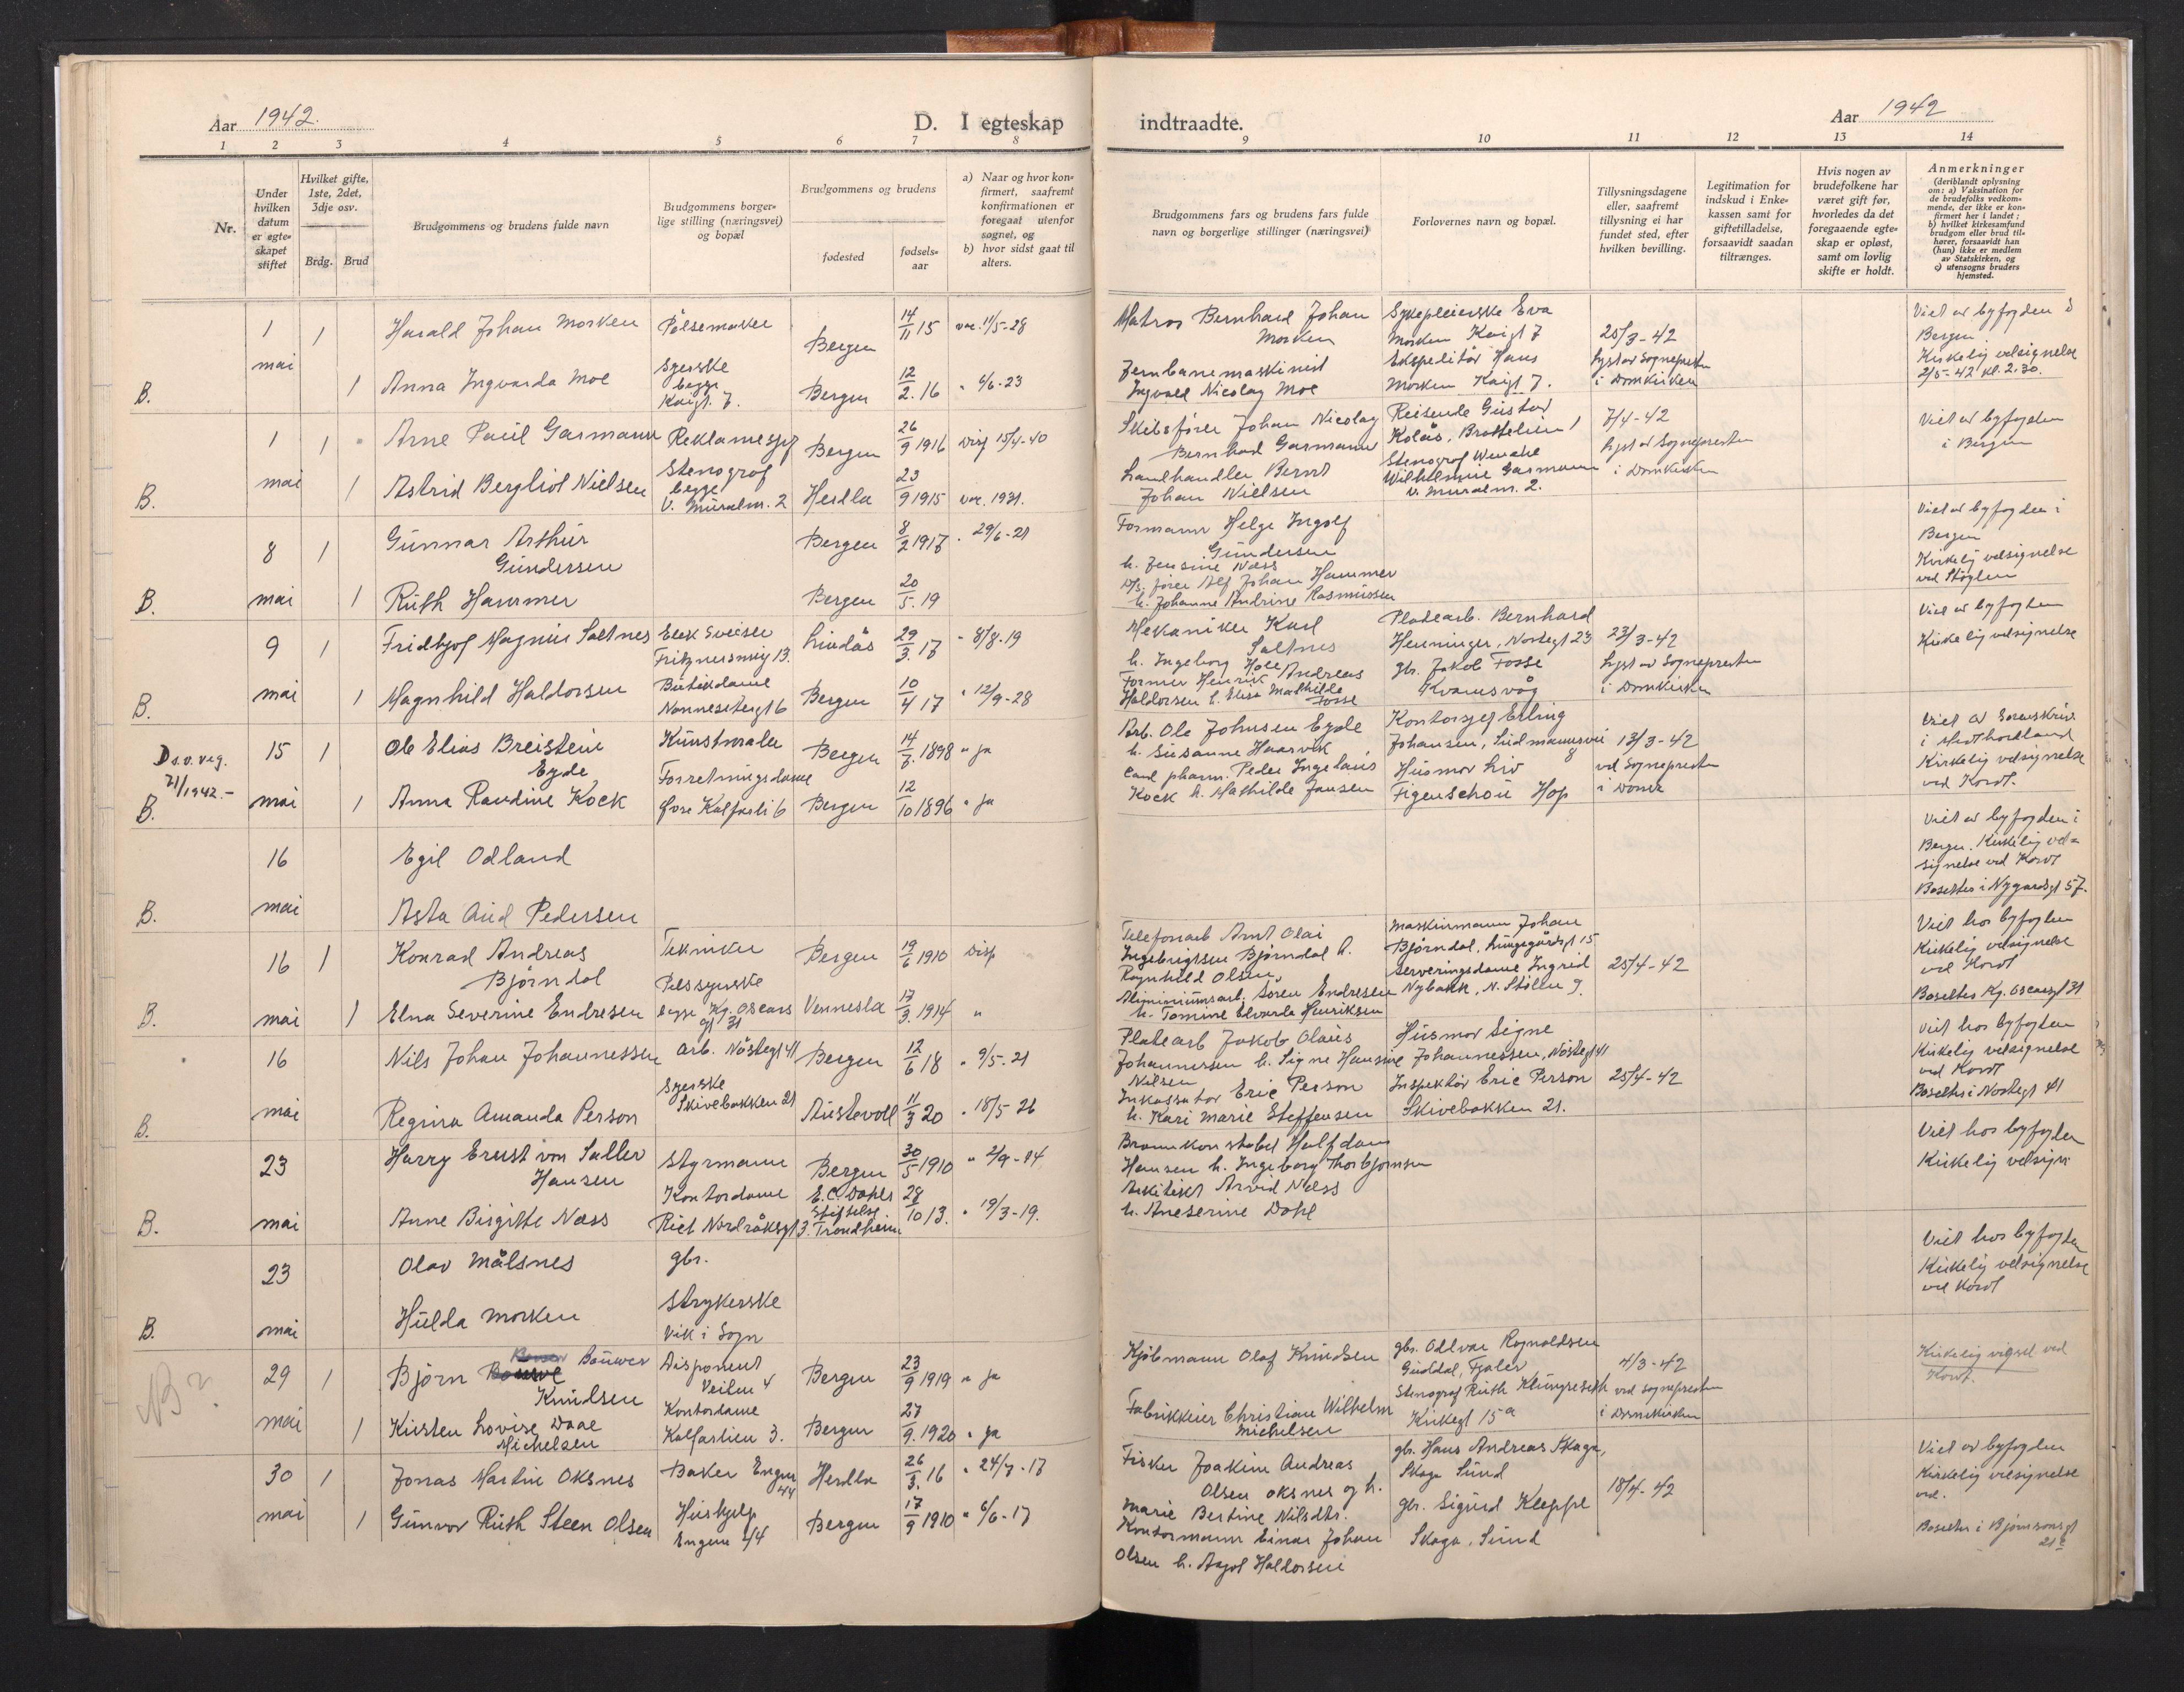 Aar 1942.
D. I egteskap
indtraadte.
Aar 1942
1 2 3 4 5 6 7 8
9 10 11 12 13 14
Nr.
Under hvilken datum er egteskapet stiftet
Hvilket gifte, 1ste, 2det, 3dje osv.
Brdg. Brud
Brudgommens og brudens fulde navn
Brudgommens borgerlige stilling (næringsvei) og bopæl
Brudgommens og brudens
fødested
fødselsaar
a) Naar og hvor konfirmert, saafremt konfirmationen er foregaat utenfor sognet, og
b) hvor sidst gaat til alters.
Brudgommens fars og brudens fars fulde navn og borgerlige stillinger (næringsvei)
Forlovernes navn og bopæl.
Tillysningsdagene eller, saafremt tillysning ei har fundet sted, efter hvilken bevilling.
Legitimation for indskud i Enkekassen samt for giftetilladelse, forsaavidt saadan tiltrænges.
Hvis nogen av brudefolkene har været gift før, hvorledes da det foregaaende egteskap er opløst, samt om lovlig skifte er holdt.
Anmerkninger
(deriblandt oplysning om: a) Vaksination for de brudefolks vedkommende, der ikke er konfirmert her i landet; b) hvilket kirkesamfund brudgom eller brud tilhører, forsaavidt han (hun) ikke er medlem av Statskirken, og c) utensogns bruders hjemsted.
1 1 Harald Johan Morken Pølsemaker Bergen 14/11 15 vac. 11/5-28
Matros Bernhard Johan Morken
Sykepleierske Eva Morken Kaigt 7
Ekspeditør Hans Morken Kaigt 7.
25/3-42
lyst av Sognepresten i Domkirken
Viet av byfogden i Bergen
Kirkelig velsignelse 2/5-42 kl. 2.30.
B. mai 1 Anna Ingvarda Moe Syerske begge Kaigt. 7. Bergen 12/2. 16 " 4/6-23
Jernbanemaskinist Ingvald Nicolay Moe
1 1 Arne Paul Garmann Reklamesjef Bergen 26/9 1916 Disp 15/4-40
Skibsfører Johan Nicolay Bernhard Garmann
Reisende Gustav Kolås, Brattelien 1
Stenograf Wenche Wilhelmine Garmann v. Muralm. 2.
7/4-42
lyst av Sognepresten i Domkirken
Viet av byfogden i Bergen
B. mai 1 Astrid Bergliot Nielsen Stenograf begge V. Muralm. 2 Herdla 23/9 1915 vac. 1931.
Landhandler Bernt Johan Nielsen
8 1 Gunnar Arthur Gundersen Bergen 8/2 1917 " 29/6-21
Formann Helge Ingolf Gundersen
h. Jensine Næss
Viet av byfogden i Bergen
Kirkelig velsignelse ved Støylen
B. mai 1 Ruth Hammer Bergen 20/5. 19
fører Alf Johan Hammer
h. Johanne Andrine Rasmussen
9 1 Fridtjof Magnus Saltnes Elek Sveiser Fritznersmug 13. Lindås 29/3. 17 " 8/8-19
Mekaniker Karl Saltnes
h. Ingeborg Hole
Platearb. Bernhard Henninger, Nøstegt 23
gbr. Jakob Fosse Kvamsvåg
23/3-42
lyst av Sognepresten i Domkirken
Viet av byfogden
Kirkelig velsignelse
B. mai 1 Magnhild Haldorsen Butikdame Nonneseterg 6 Bergen 10/4 17 " 12/9-28
Former Henrik Andreas Haldorsen h. Elisa Mathilde Fosse
D s.v. veg. 21/1942.-
15 1 Ole Elias Breistein Eyde Kunstmaler Bergen 14/7. 1898 " ja
Arb. Ole Johnsen Eyde
h. Susanne Haarvik
Kontorsjef Erling Johansen, Sudmannsvei 8
Husmor Liv Figenschou Hop
13/3-42
ved Sognepresten i Domk
Viet av Sorenskriv. i Midthordland
Kirkelig velsignelse ved Kordt.
B. mai 1 Anna Randine Kock Forretningsdame Øvre Kalfarli 6 Bergen 12/10 1896 " ja
Cand pharm. Peder Ingelaus Kock h. Mathilde Jansen
16 Egil Odland
Viet av byfogden i Bergen. Kirkelig velsignelse ved Kordt
Bosettes i Nygaardsgt 57.
B. mai Asta Aud Pedersen
16 1 Konrad Andreas Bjørndal Tekniker Bergen 19/6 1910 Disp
Telefonarb Arnt Olai Ingebrigtsen Bjørndal h. Ragnhild Olsen
Maskinmann Johan Bjørndal, Lungegårdsgt 15
Serveringsdame Ingrid Nybakk, N. Stølen 9.
25/4-42
Viet hos byfogden
Kirkelig velsignelse ved Kordt
Bosettes Kg. Oscarsgt 31
B. mai 1 Elna Severine Endresen Pelssyerske begge Kg. Oscars gt 31 Vennesla 17/3. 1914 "
Aluminiumsarb. Søren Endresen
h. Tomine Edvarda Henriksen
16 Nils Johan Johannessen Arb. Nøstegt 41 Bergen 12/6 18 " 9/5-21
Platearb Jakob Olaus Johannessen h. Signe Hansine Nilsen
Husmor Signe Johannessen, Nøstegt 41
Inspektør Eric Person Skivebakken 21.
25/4-42
Viet hos byfogden
Kirkelig velsignelse ved Kordt
Bosettes i Nøstegt 41
B. mai Regina Amanda Person Syerske Skivebakken 21 Austevoll 11/3 20 " 18/5-26
Inkassator Eric Person
h. Kari Marie Steffensen
23 Harry Ernst von Saller Hansen Styrmann Bergen 30/5 1910 " 2/9-14
Brannkonstabel Halfdan Hansen h. Ingeborg Thorbjørnsen
Viet hos byfogden
Kirkelig velsign.
B. mai Anne Birgitte Næss Kontordame Rich Nordråksgt 3. E.C. Dahls Stiftelse Trondheim 28/10 13. " 19/3-19.
Arkitekt Arvid Næss
h. Aneserine Dahl
23 Olav Målsnes gbr.
Viet hos byfogden
Kirkelig velsignelse ved Kordt
B. mai Hulda Morken Strykerske Vik i Sogn
NB?
29 1 Bjørn Bouwer Knudsen Disponent Veiten 4 Bergen 23/9 1919 " ja
Kjøbmann Olaf Knudsen
gbr. Oddvar Ragnvaldsen Guddal, Fjaler
Stenograf Ruth Klungreseth Kirkegt 15a
4/3-42
ved sognepresten i Domkirken
Kirkelig vigsel ved Kordt.
mai 1 Kirsten Lovise Daae Michelsen Kontordame Kalfarlien 3. Bergen 27/9. 1920 " ja
Fabrikkeier Christian Wilhelm Michelsen
30 1 Jonas Martin Oksnes Baker Engen 44 Herdla 26/3. 16 " 24/7-17
Fisker Joakim Andreas Olsen Oksnes og h. Marie Bertine Nilsdtr.
gbr. Hans Andreas Skaga, Skaga Sund
gbr. Sigurd Kleppe Skaga, Sund
18/4-42
Viet av byfogden
Kirkelig velsignelse ved.
Bosettes i Bjørnsonsgt
mai 1 Gunvor Ruth Steen Olsen Hushjelp Engen 44 Bergen 17/9 1910 " 6/6-17
Kontormann Einar Johan Olsen h. Aagot Haldorsen